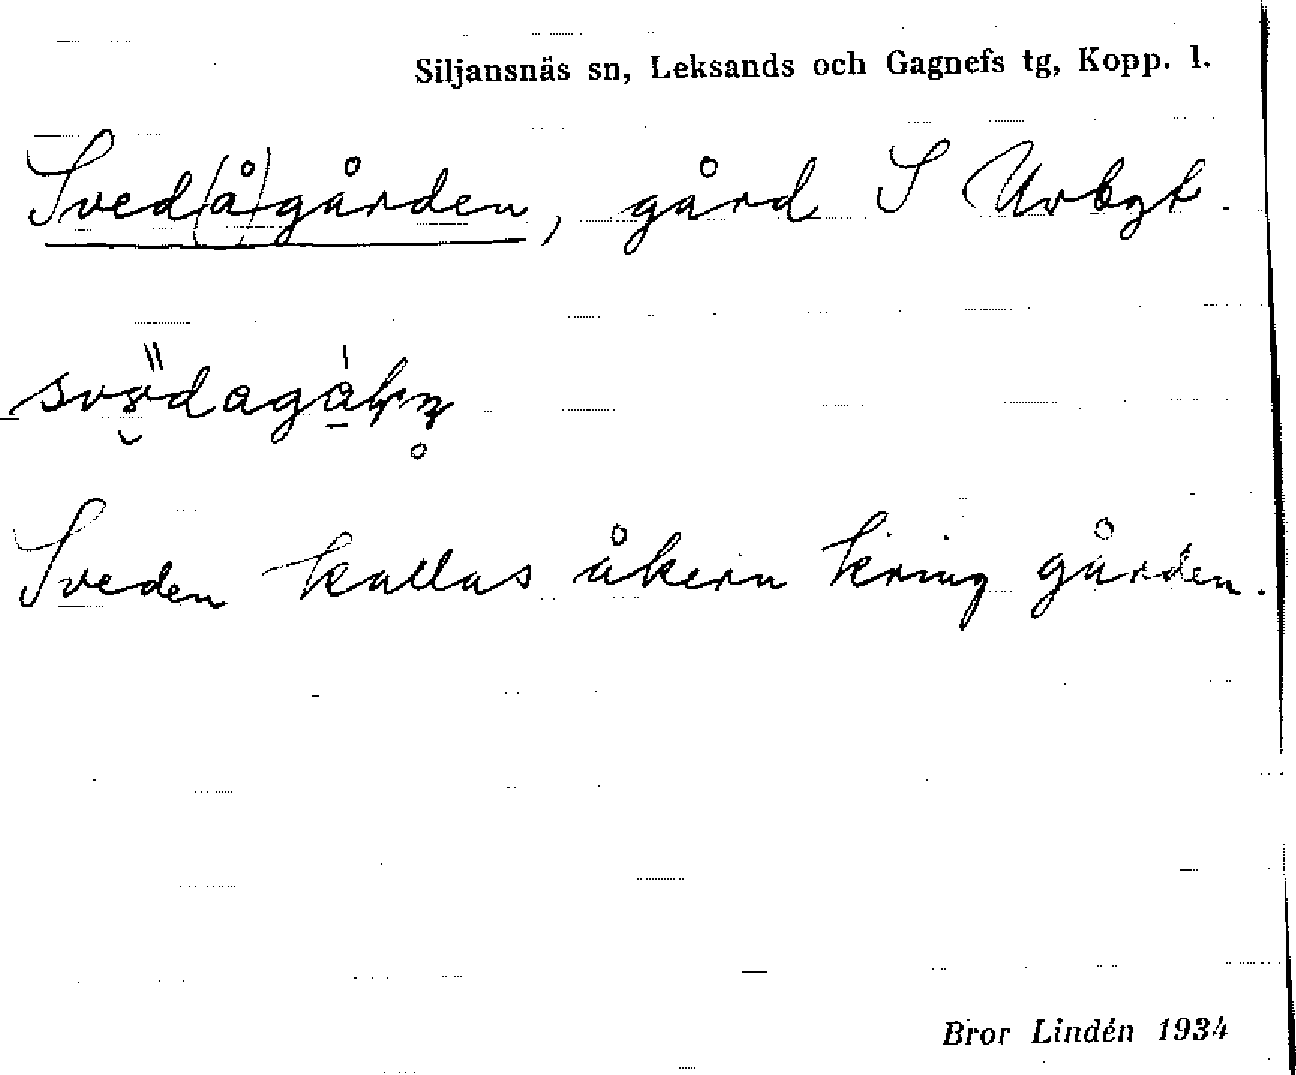 Siljansnäs sn, Leksands och Gagnefs tg, Kopp. l.
Sved(å)gården, gård S Urbgt.
Sveden kallas åkern kring gården.
Bror Lindén 1934